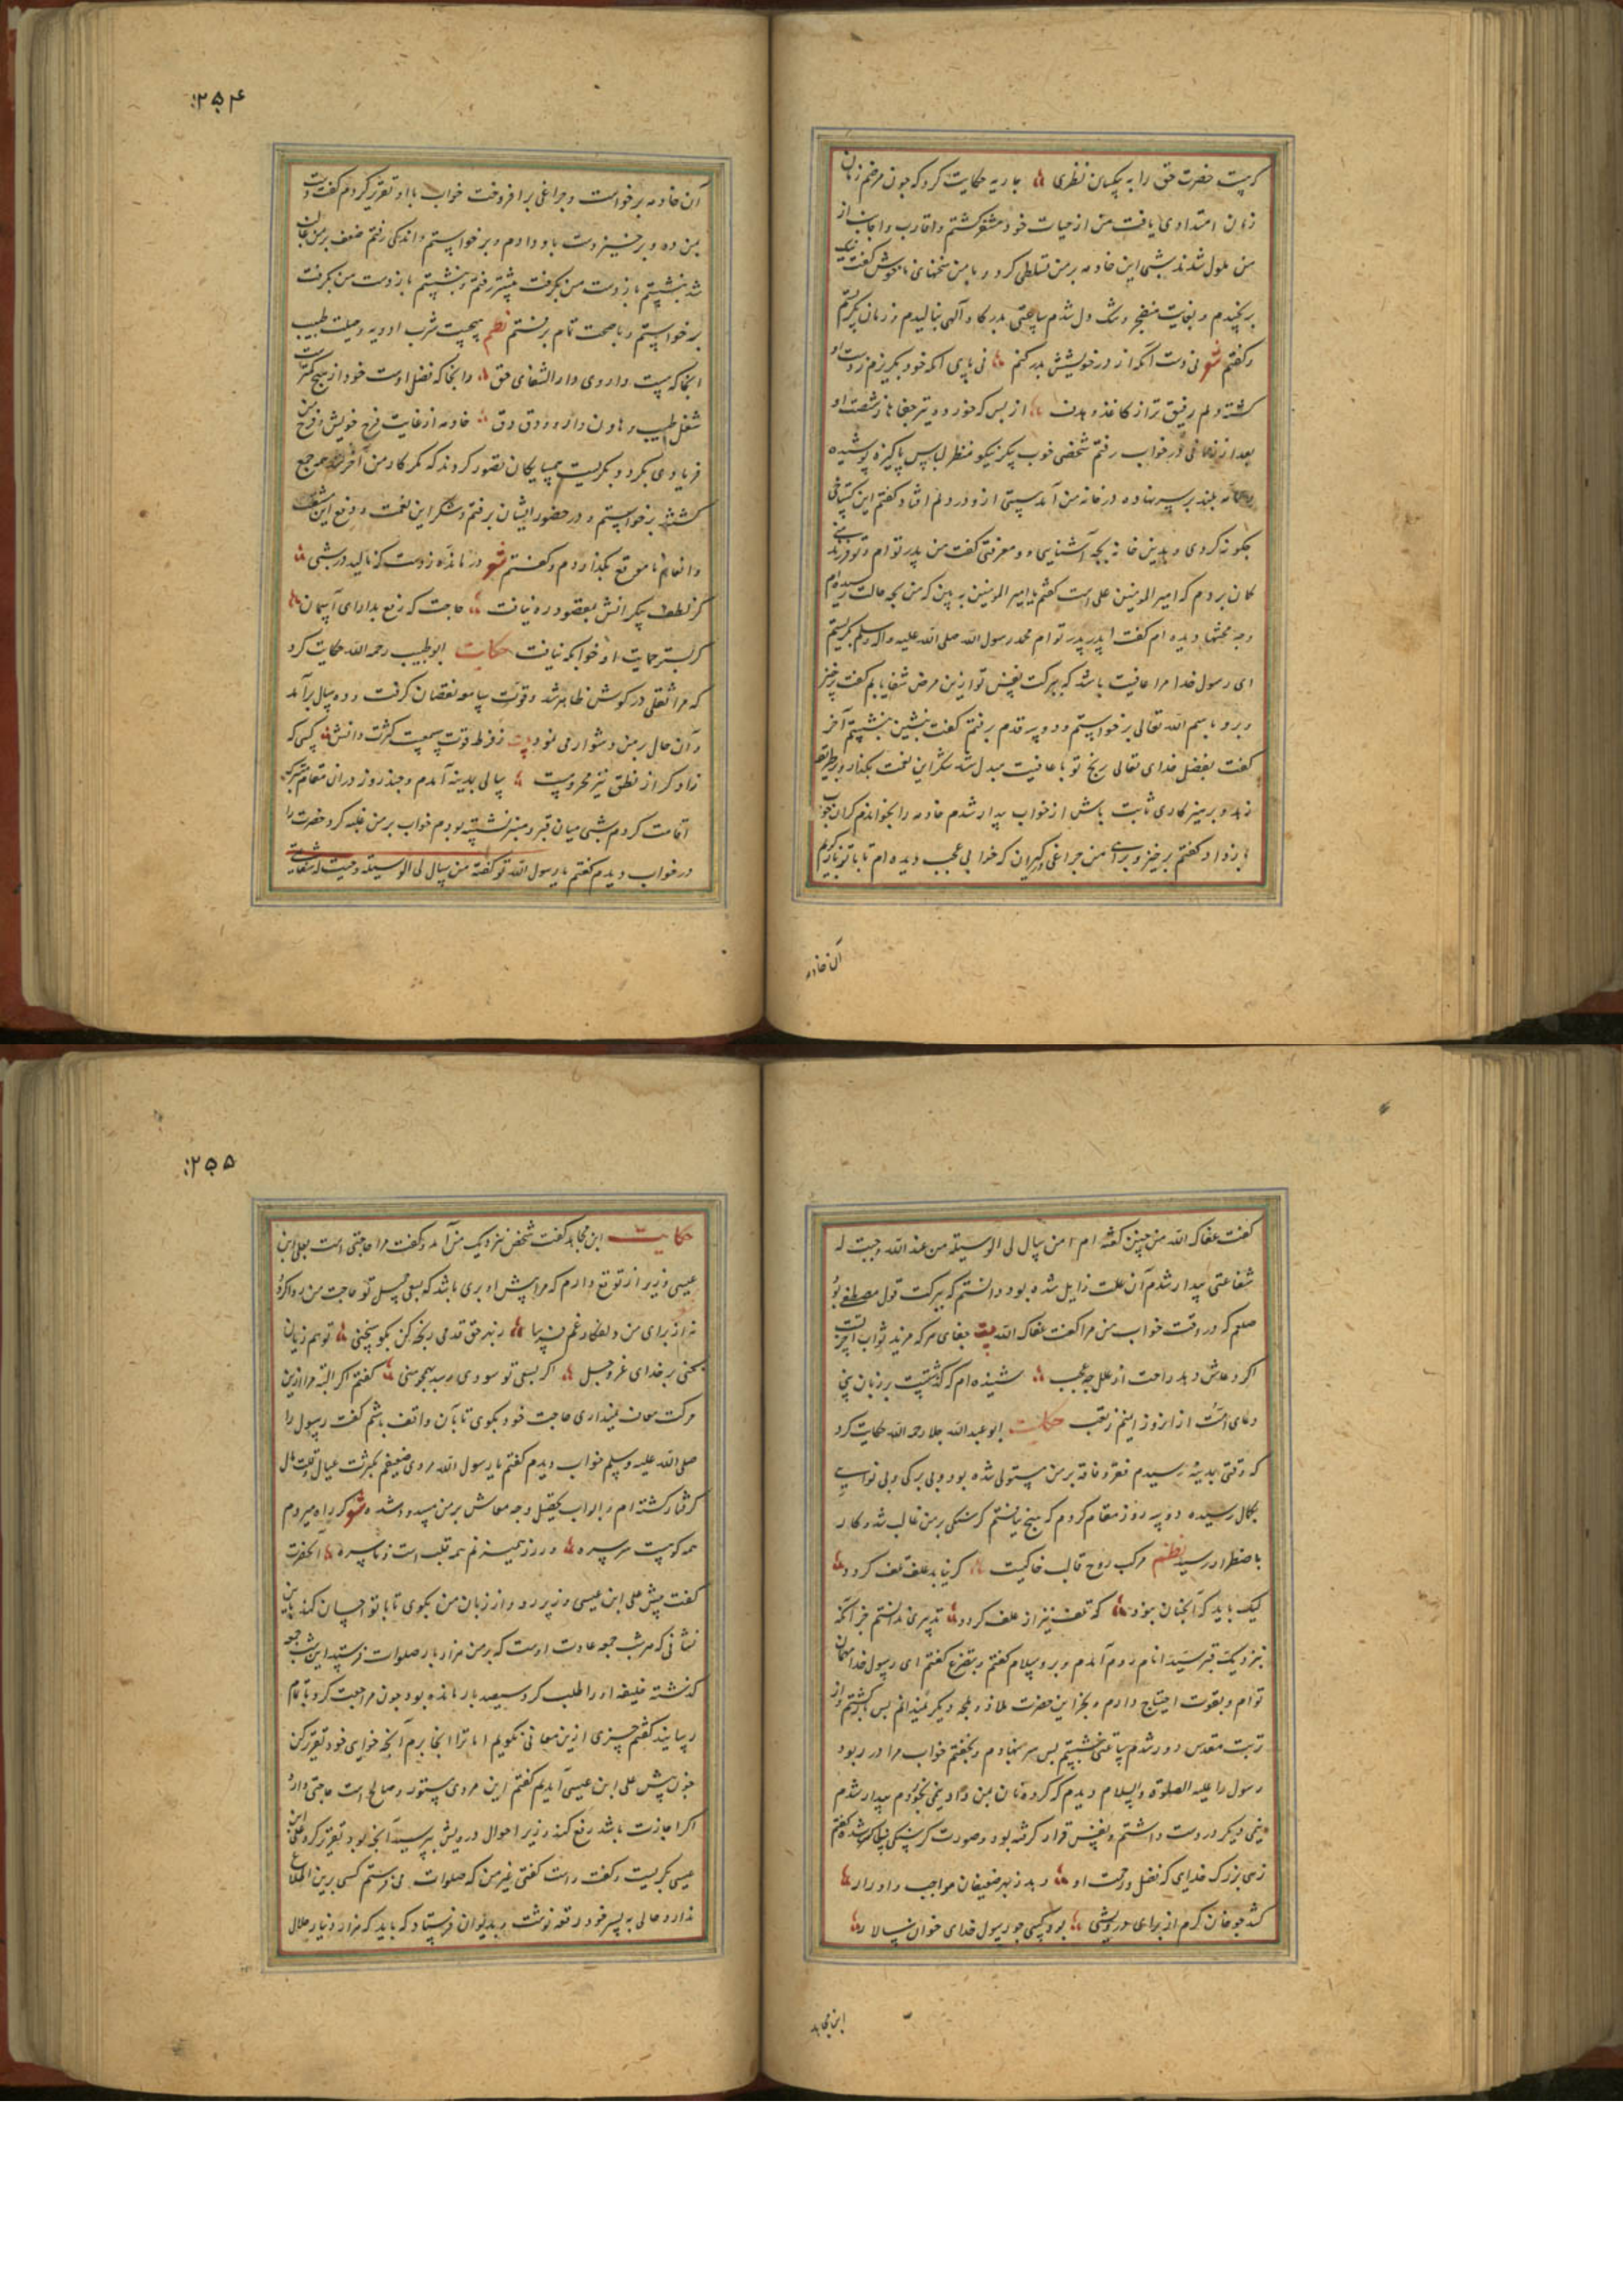 کرچه حضرت حق را به یکسان نظری جاریه حکایت کرد که چون مرضم زمان
زمان امتدادی یافت من از حیات خود مشعر کشتم و اقارب و اجانب از
من ملول شدند شبی این خادمه بر من تسلطی کرد و با من سخنهای ناخوش گفت نیک
برنجیدم و بغایت منضجر و تنک دل شدم ساعتی بدرکاه آلهی بنالیدم و زمانی بکریستم
و کفتم شعر نی دست آنکه از در خویشش بدر کنم نی پای آنکه خود بکریزم ز دست او
کشته دلم رقیق تر از کاغذ و بدن از بس که خورد تیر جفاها ز شصت او
بعد از زمانی در خواب رفتم شخصی خوب پیکر نیکو منظر لباس پاکیزه پوشیده
و عمامه بلند بر سر نهاده در خانه من آمد هیبتی ازو در دلم افتاد کفتم این کستاخی
چکونه کردی و بدین خانه بچه آشنایی و معرفتی گفت من پدر توام و تو فرزند منی
کمان بردم که امیر المومنین علی است کفتم یا امیر المومنین به بین که من بچه حالت رسیده‌ام
و چه محنتها دیده ام کفت ای پدر پدر توام محمد رسول الله صلی الله علیه و اله و سلم بکریستم
ای رسول خدا مرا عافیت باشد که ببرکت نفس تو ازین مرض شفا یابم کفت برخیز
و برو باسم الله تعالی برخواستم و دو سه قدم برفتم کفت بنشین بنشستم آخر
کفت بفضل خدای تعالی رنج تو با عافیت مبدل شد شکر این نعمت بکذار و بر طریقه
زهد و پرهیزکاری ثابت باش از خواب بیدار شدم خادمه را بخواندم کران خواب
کفتم برخیز و برای من چراغی بکیران که خوابی عجب دیده ام تا با تو بازکویم
آن خادمه
۲۵۴
آن خادمه برخواست و چراغی برافروخت خواب با او تقریر کردم کفت دست
بمن ده و برخیز دست باو دادم و برخواستم و اندکی رفتم ضعف بر من غالب
شد بنشستم باز دست من بکرفت پیشتر رفتم و بنشستم باز دست من بکرفت
برخواستم و با صحت تمام برفتم نظم هیچیست شرب ادویه و حیلت طبیب
انجا که هست داروی دار الشفای حق و انجا که فضل اوست خود از هیچ کمترست
شغل طبیب و هاون دارو و دق دق خادمه از غایت فرح خویش و فرح من
فریادی بکرد و بکریست همسایکان تصور کردند که مکر کار من آخر شد همه جمع
کشتند برخواستم و در حضور ایشان برفتم و شکر این نعمت و دفع این مشقت
و انعام ناموقع بکذاردم و کفتم شعر درمانده زدست که نالید در شبی
کز لطف بیکرانش بمقصود ره نیافت حاجت که رفع بدارای آسمان
کز بستر حمایت او خوابکه نیافت حکایت ابو طبیب رحمه الله حکایت کرد
که مرا ثقلی در کوش ظاهر شد و قوت سامعه نقصان کرفت و ده سال برآمد
و آن حال بر من دشوار می نمود بیت ز فرط قوت سمعست کثرت دانش کسی که
زاد کر از نطق نیز محروسست سالی بمدینه آمدم و چند روز دران مقام متبرکه
اقامت کردم شبی میان قبر و منبر نشسته بودم خواب بر من غلبه کرد حضرت را
در خواب دیدم کفتم یا رسول الله تو کفته من سال لی الوسیلة وجبت له شفاعتی
کفت عفاک الله من چنین کفته ام من سال لی الوسیلة من عند الله وجبت له
شفاعتی بیدار شدم آن علت زایل شده بود دانستم که ببرکت قول مصطفی بود
صلعم که در وقت خواب من مرا کفت عفاک الله بیت جفای مرکه مزید ثواب آخرتست
اکر دعاش دهد راحت از علل چه عجب شنیده ام که کذشتست بر زبان نبی
دعای امت از امروز اینچنم ز تعب حکایت ابو عبدالله جلا رحمه الله حکایت کرد
که وقتی بمدینه رسیدم فقر و فاقه بر من مستولی شده بود و بی برکی و بی نوایی
بکمال رسیده دو سه روز مقام کردم که هیچ نیافتم کرسنکی بر من غالب شد و کار
باضطرار رسید نظم مرکب روح قالب خاکیست کر نیابد علف تلف کردد
لیک باید که آنچنان نبود که تلف نیز از علف کردد تدبیری ندانستم جز آنکه
بنزدیک قبر سید انام روم آمدم و برو سلام کفتم و بتضرع کفتم ای رسول خدا مهمان
توام و بقوت احتیاج دارم و بجز این حضرت ملاذ و ملجا دیکر نمیدانم پس بازکشتم و از
تربت مقدس دور شدم ساعتی بنشستم پس سر بنهادم و بخفتم خواب مرا در ربود
رسول را علیه الصلوة والسلام دیدم که کرده نان بمن داد نیمی بخوردم بیدار شدم
نیمی دیکر در دست داشتم و نفس قرار کرفته بود و صورت کرسنکی متلاشی شده کفتم
زهی بزرک خدای که فضل و رحمت او دهد ز بهر ضعیفان مواجب و ادرار
کشد چو خان کرم از برای درویشی بود کسی چو رسول خدای خوان سالار
ابن مجاهد
۲۵۵
حکایت ابن مجاهد کفت شخص نزدیک من آمد و کفت مرا حاجتی است بعلی ابن
عیسی وزیر از تو توقع دارم که مرا پیش او بری باشد که بسعی جمیل تو حاجت من روا کردد
نه از برای من دلفکار غم فرسا رنه حق قدمی رنجه کن بکو سخنی تو هم زیان
نکنی بر خدای عز و جل اکر بسعی تو سودی رسد بهمچو منی کفتم اکر البته مرا ازین
حرکت معاف نمیداری حاجت خود بکوی تا بآن واقف باشم کفت رسول را
صلی الله علیه و سلم خواب دیدم کفتم یا رسول الله مردی ضعیفم بکثرت عیال و قلت مال
کرفتار کشته ام و ابواب تحصیل وجه معاش بر من مسدود شده شعر کر راه میروم
همه کویست سر بسره ور زر همیزنم همه قلب است و ناسره آنحضرت
کفت پیش علی ابن عیسی وزیر رو و از زبان من بکوی تا با تو احسان کند باین
نشانی که هر شب جمعه عادت اوست که بر من هزار بار صلوات فرستد این شب جمعه
کذشته خلیفه او را طلب کرد و سیصد بار مانده بود چون مراجعت کرد باتمام
رسانید کفتم چیزی ازین معانی نکویم اما ترا انجا برم آنچه خواهی خود تقریر کن
چون پیش علی ابن عیسی آمدیم کفتم این مردی مستور و صالح است حاجتی دارد
اکر اجازت باشد رفع کند وزیر احوال درویش بپرسید آنچه بود تقریر کرد علی ابن
عیسی بکریست و کفت راست کفتی غیر من که صلوات می فرستم کسی برین اطلاع
ندارد و حالی به پسر خود رقعه نوشت و بدیوان فرستاد که باید که هزار دینار حلال